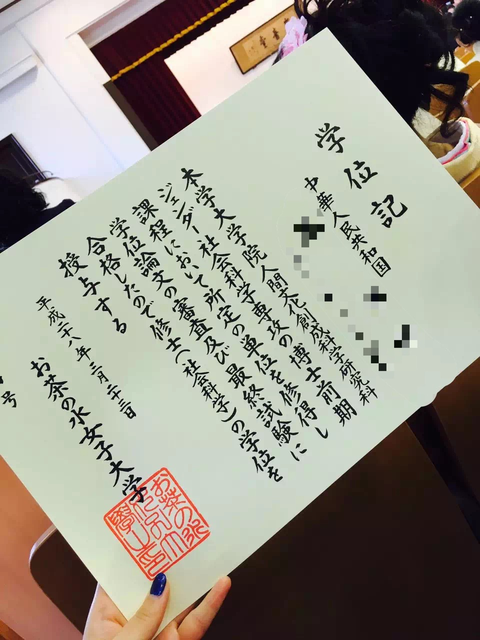 学位記
中華人民共和国
本学大学院人間文化創成科学研究科
ジェンダー社会科学専攻の博士前期
課程において所定の単位を修得し
学位論文の審査及び最終試験に
合格したので修士(社会科学)の学位を
授与する
平成二十八年三月二十三日
お茶の水女子大学
号